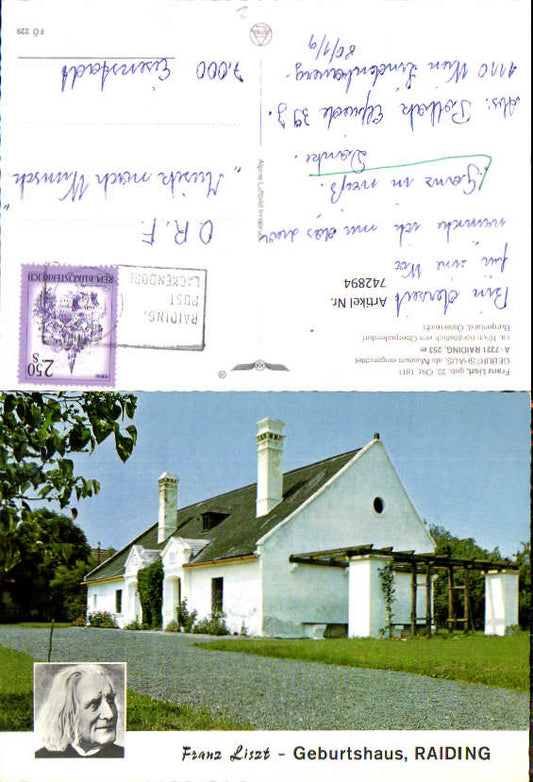 Franz Liszt, geb. 22. Okt. 1811
GEBURTSHAUS, als Museum eingerichtet
A-7321 RAIDING, 253 m
ca. 10 km nordöstlich von Oberpullendorf
Burgenland, Österreich
Artikel Nr.
742894
Bin derzeit
für eine Wo
wünsche ich mir das war
Ganz in weiß.
Danke.
Abs: Pollak Elfriede 39 J.
1110 Wien Lindenbauerg.
80/1/9
Alpine Luftbild Innsbruck
2.50
S
REPUBLIK ÖSTERREICH
RAIDING,
POST
LACKENDORF
O.R.F.
"Musik nach Wunsch"
7.000 Eisenstadt
FÖ 229
Franz Liszt - Geburtshaus, RAIDING